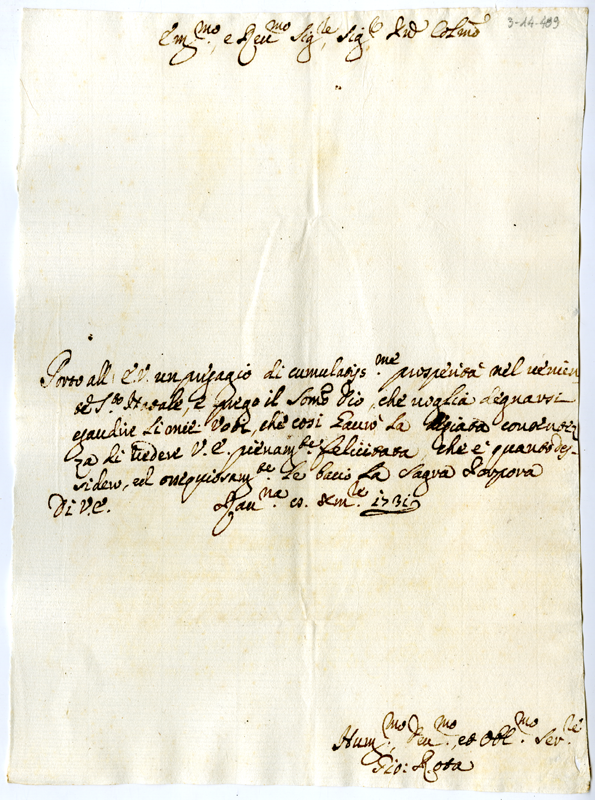 3-14-489
Em.mo, e Reu.mo Sig.re, Sig.r Pad. Colmo
Porto all' E.V. un presagio di cumulatiss.me prosperità nel venien
te S.to Natale, e prego il Somo Dio, che voglia degnarsi
esaudire li miei Voti, che così havrò la bramata contentez
za di vedere V.E. pienam.te felicitata, che è quanto des-
sidero, ed ossequiosam.te le bacio la Sagra Porpora
Di V.E. Rau.na 10. Xm.re 1731
Hum.mo, Deu.mo, et Obl.mo Ser.re
Gio: Rota